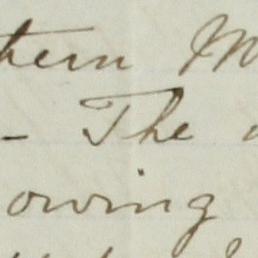 thern M
- The
owing